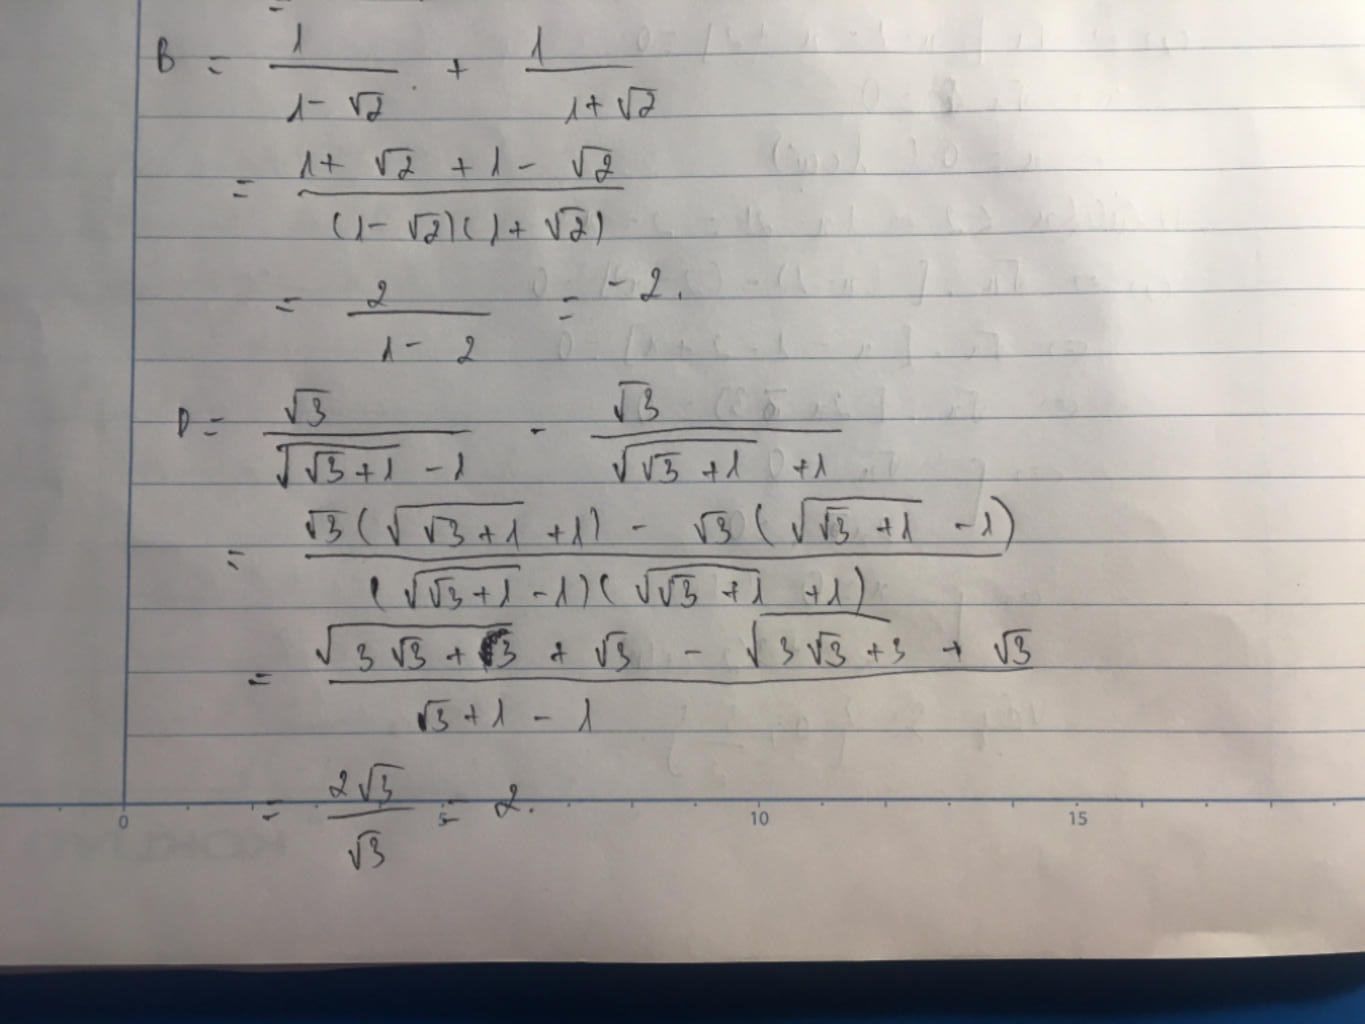 B = 1/(1 - √2) + 1/(1 + √2)
= (1 + √2 + 1 - √2)/((1 - √2)(1 + √2))
= 2/(1 - 2) = -2.
D = √3/(√(√3 + 1) - 1) - √3/(√(√3 + 1) + 1)
= (√3(√(√3 + 1) + 1) - √3(√(√3 + 1) - 1))/((√(√3 + 1) - 1)(√(√3 + 1) + 1))
= (√(3√3 + 3) + √3 - √(3√3 + 3) + √3)/(√3 + 1 - 1)
= 2√3/√3 = 2.
0 5 10 15